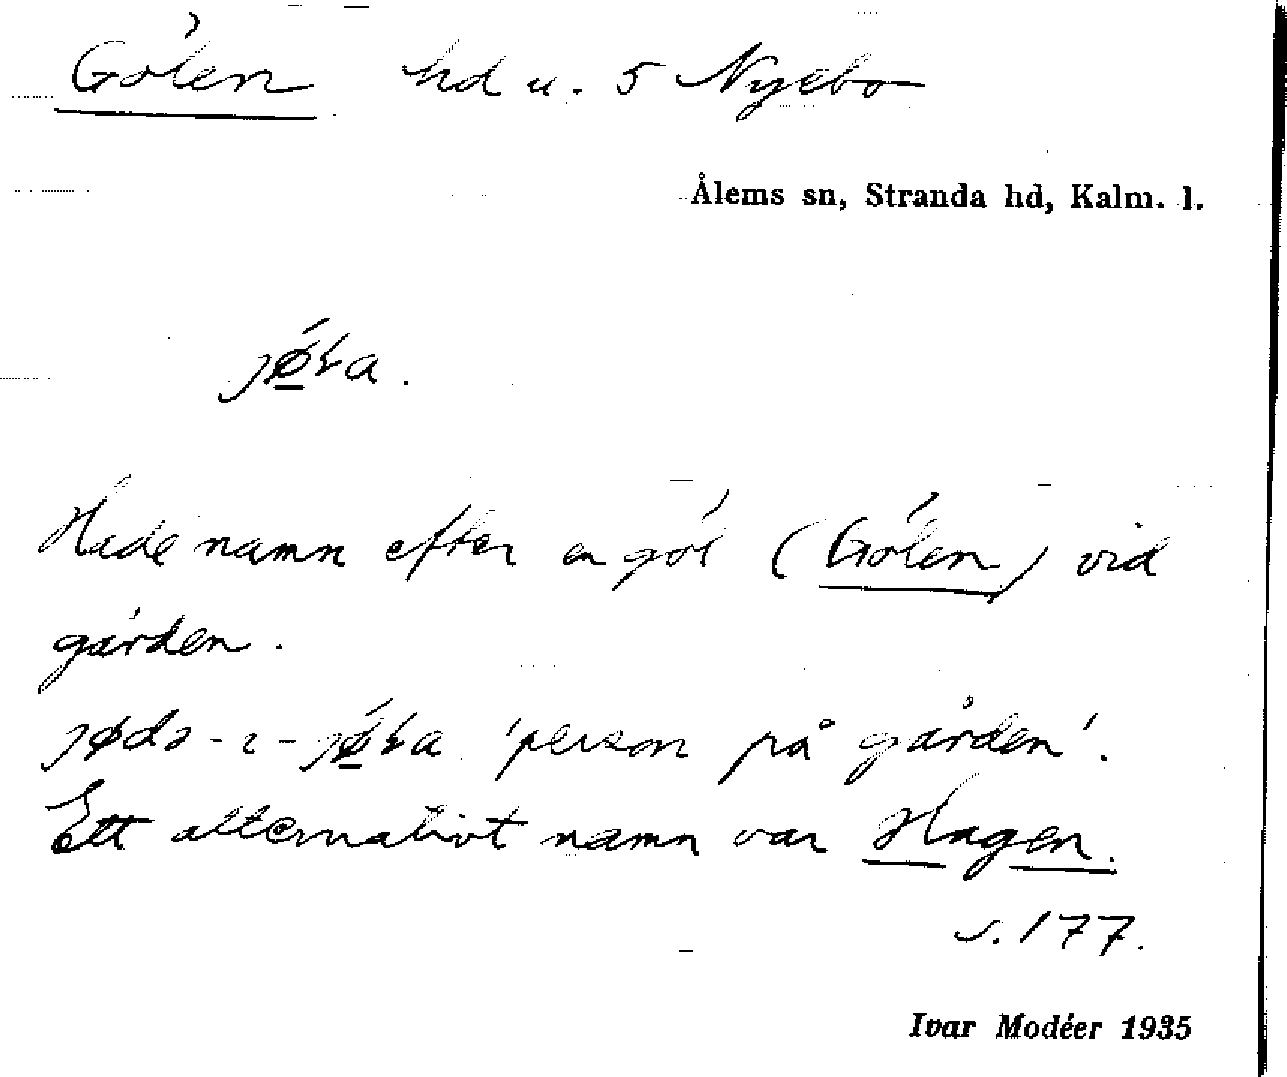 Gölen hd u. 5 Nyebo
Ålems sn, Stranda hd, Kalm. l.
jǿ̱ɫa.
Hade namn efter en göl (Gölen) vid
gården.
jødə-ɩ-jǿ̱ɫa 'person på gården'.
Ett alternativt namn var Hagen.
s. 177.
Ivar Modéer 1935